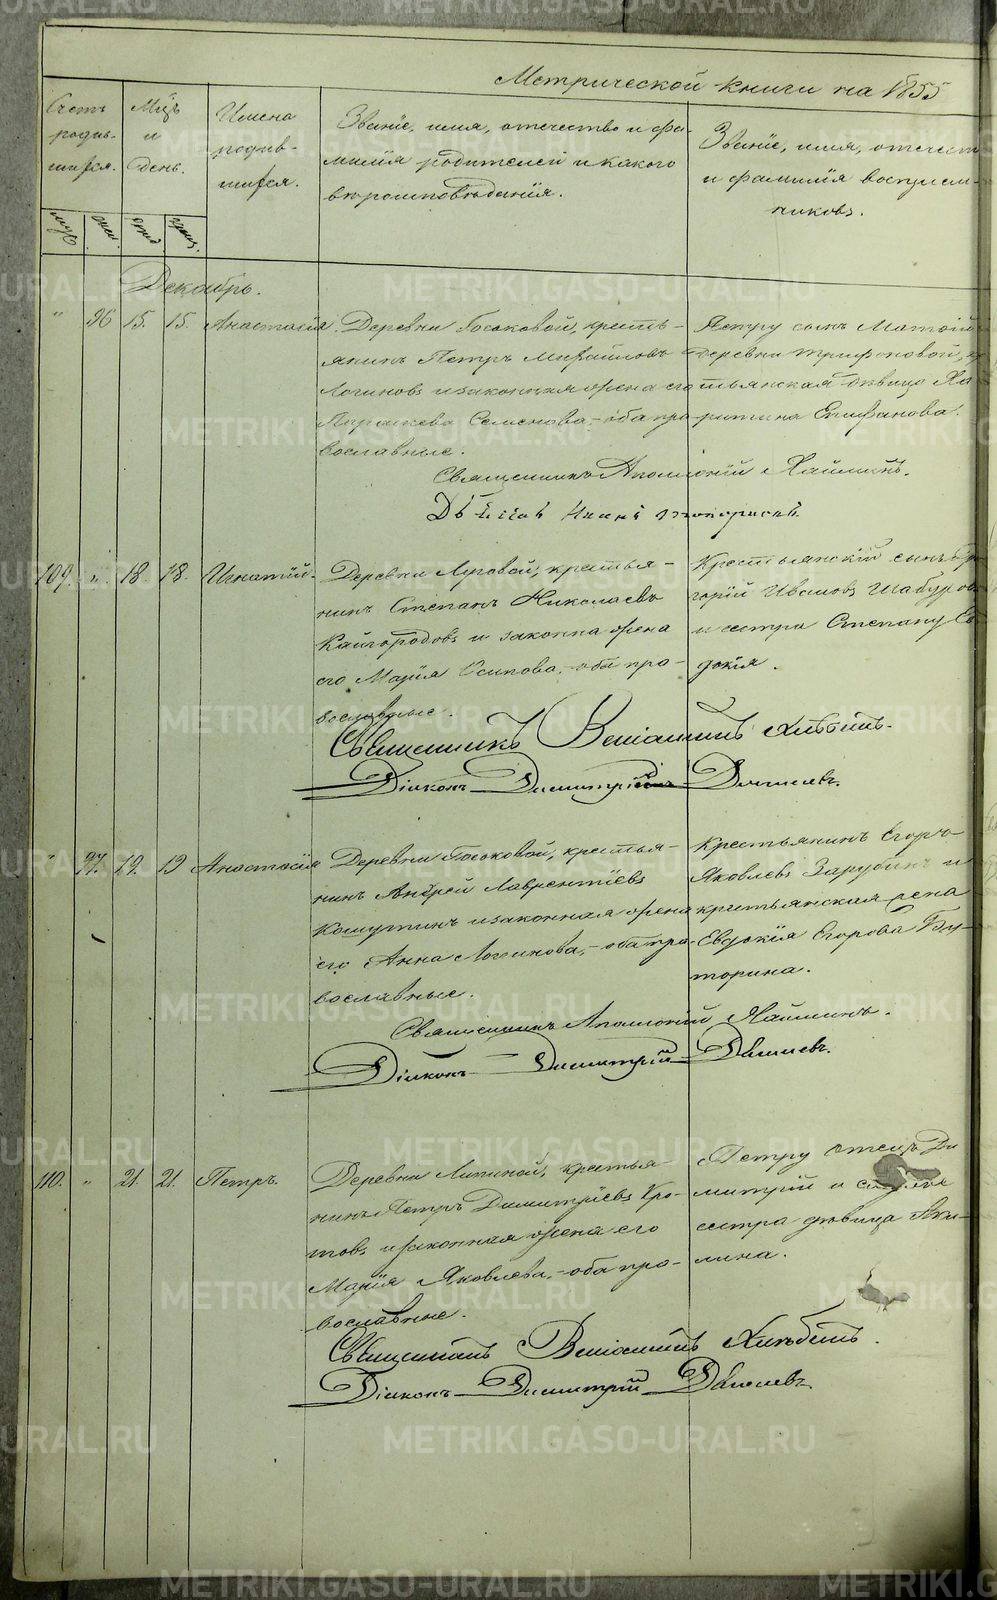 Метрической книги на 1855
Счетъ родив-шихся.
Мцъ и День.
Имена родив-шихся.
Званіе, имя, отечество и фа-
милія родителей и какого
вѣроисповѣданія.
Званіе, имя, отечест
и фамилія воспріем-
никовъ.
муж. жен.
рожд. крещ.
Декабрь.
" 96 15. 15. Анастасія.
Деревни Госьковой, кресть-
янинъ Петръ Михайловъ
Логиновъ и законная жена его
Параскева Семенова, - оба пра-
вославные.
Петру сынъ Матѳій
деревни Трифоновой, кр
тьянская дѣвица Ха
ритина Епифанова.
Священникъ Аполлоній Хайминъ.
109. " 18. 18. Игнатій.
Деревни Луговой, крестья-
нинъ Степанъ Николаевъ
Кайгородовъ и законна жена
его Марія Осипова, - оба пра-
вославные.
Крестьянскій сынъ Гри
горій Ивановъ Шабуров
и сестра Степану Ев
докія.
Священникъ Веніаминъ Хлѣбинъ.
Діаконъ Димитрій
" 97. 19. 19 Анастасія
Деревни Госьковой, крестья-
нинъ Андрей Лаврентіевъ
Кошутинъ и законная жена
его Анна Логинова, - оба пра-
вославные.
Крестьянинъ Егоръ
Яковлевъ Зарубинъ и
крестьянская жена
Евдокія Егорова Бу-
торина.
Священникъ Аполлоній Хайминъ.
Діаконъ Димитрій
110. " 21. 21. Петръ.
Деревни Липиной, крестья
нинъ Петръ Димитріевъ Кро-
товъ и законная жена его
Марія Яковлева, - оба пра-
вославные.
Петру отецъ Ди
митрій и
сестра дѣвица Аки-
лина.
Священникъ Веніаминъ Хлѣбинъ.
Діаконъ Димитрій
METRIKI.GASO-URAL.RU